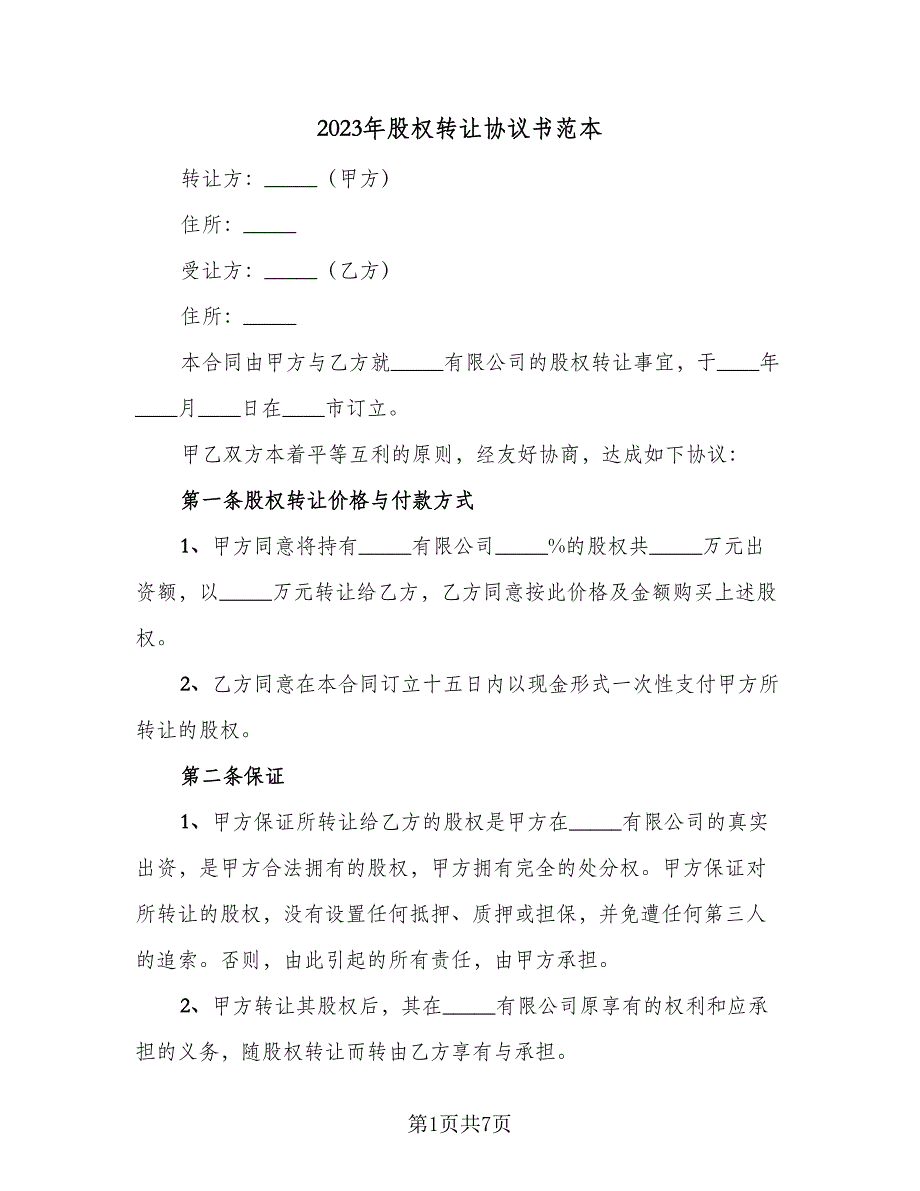 2023年股权转让协议书范本
转让方：_____（甲方）
住所：_____
受让方：_____（乙方）
住所：_____
本合同由甲方与乙方就_____有限公司的股权转让事宜，于____年
____月____日在____市订立。
甲乙双方本着平等互利的原则，经友好协商，达成如下协议：
第一条股权转让价格与付款方式
1、甲方同意将持有_____有限公司_____%的股权共_____万元出
资额，以_____万元转让给乙方，乙方同意按此价格及金额购买上述股
权。
2、乙方同意在本合同订立十五日内以现金形式一次性支付甲方所
转让的股权。
第二条保证
1、甲方保证所转让给乙方的股权是甲方在_____有限公司的真实
出资，是甲方合法拥有的股权，甲方拥有完全的处分权。甲方保证对
所转让的股权，没有设置任何抵押、质押或担保，并免遭任何第三人
的追索。否则，由此引起的所有责任，由甲方承担。
2、甲方转让其股权后，其在_____有限公司原享有的权利和应承
担的义务，随股权转让而转由乙方享有与承担。
第1页共7页